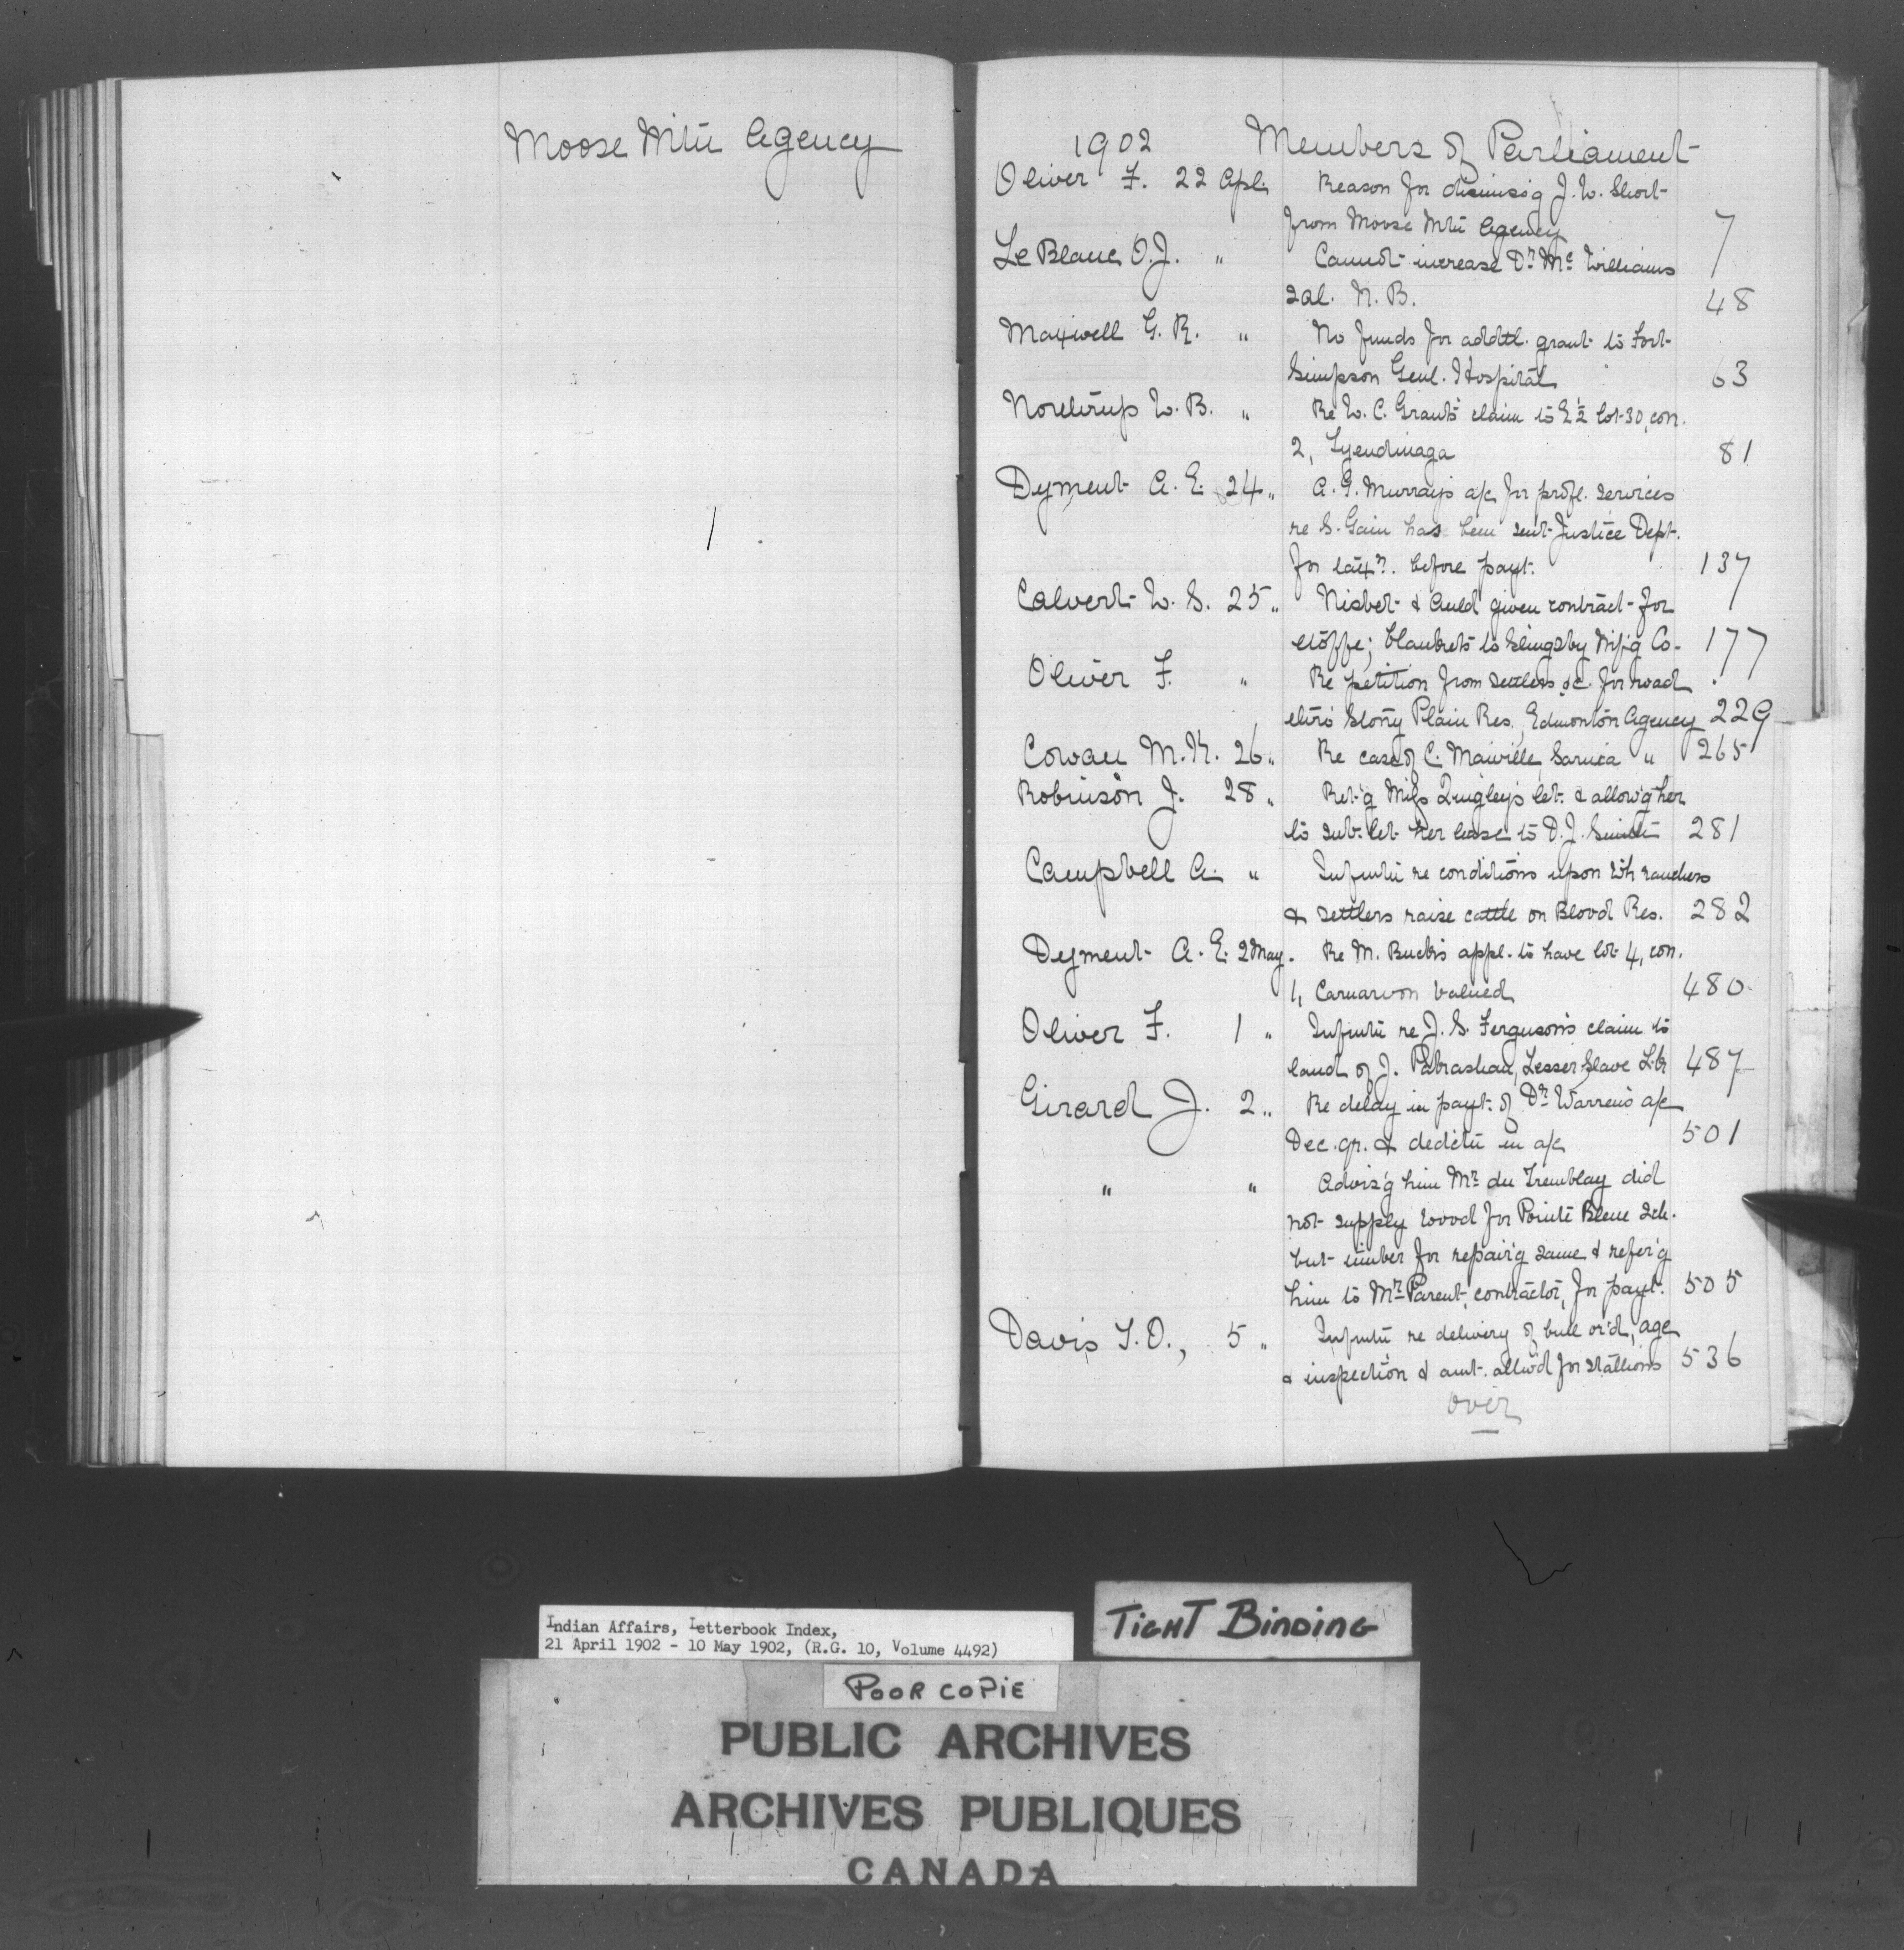 Moose Mtn Agency
1902 Members of Parliament
Oliver F. 22 Apl. Reason for dismiss'g J. W. Short
from Moose Mtn Agency 7
LeBlanc O. J. " Cannot increase Dr. Mc Williams
sal. N. B. 48
Maxwell G. R. " No funds for addtl. grant to Fort
Simpson Genl. Hospital 63
Northrup W. B. " Re W. C. Grant's claim to E ½ lot 30, con.
2, Tyendinaga 81
Dyment A. E. 24 " A. G. Murray's a/c for profl. services
re S. Gain has been sent Justice Dept.
for taxn. before payt. 137
Calvert W. S. 25 " Nisbet & Auld given contract for
etoffe; blankets to Slingsby Mf'g Co. 177
Oliver F. " Re petition from settlers &c. for road
thro' Stony Plain Res., Edmonton Agency 229
Cowan M. K. 26 " Re case of C. Maiville, Sarnia " 265
Robinson J. 28 " Ret'g Miss Quigley's let. & allow'g her
to sub-let her lease to D. J. Smith 281
Campbell A. " Infmtn re conditions upon wh ranchers
& settlers raise cattle on Blood Res. 282
Dyment A. E. 2 May. Re M. Buck's appl. to have lot 4, con.
1, Carnarvon valued 480
Oliver F. 1 " Infmtn re J. S. Ferguson's claim to
land of J. Lesser Slave Lk 487
Girard J. 2 " Re delay in payt. of Dr. Warren's a/c
Dec. qr. & dedctn in a/c 501
" " Advis'g him Mr. du Tremblay did
not supply wood for Pointe Bleue Sch.
but timber for repair'g same & refer'g
him to Mr. Parent, contractor, for payt. 505
Davis T. O., 5 " Infmtn re delivery of bull or'd, age
& inspection & amt. allw'd for stallions 536
over
Indian Affairs, Letterbook Index,
21 April 1902 - 10 May 1902, (R.G. 10, Volume 4492)
TIGHT BINDING
POOR COPIE
PUBLIC ARCHIVES
ARCHIVES PUBLIQUES
CANADA